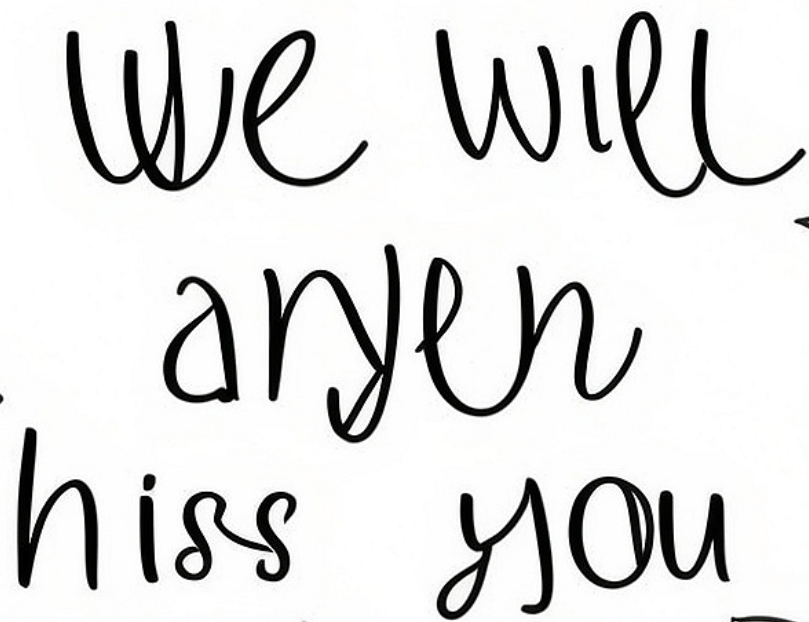 We will
anyen
hiss you